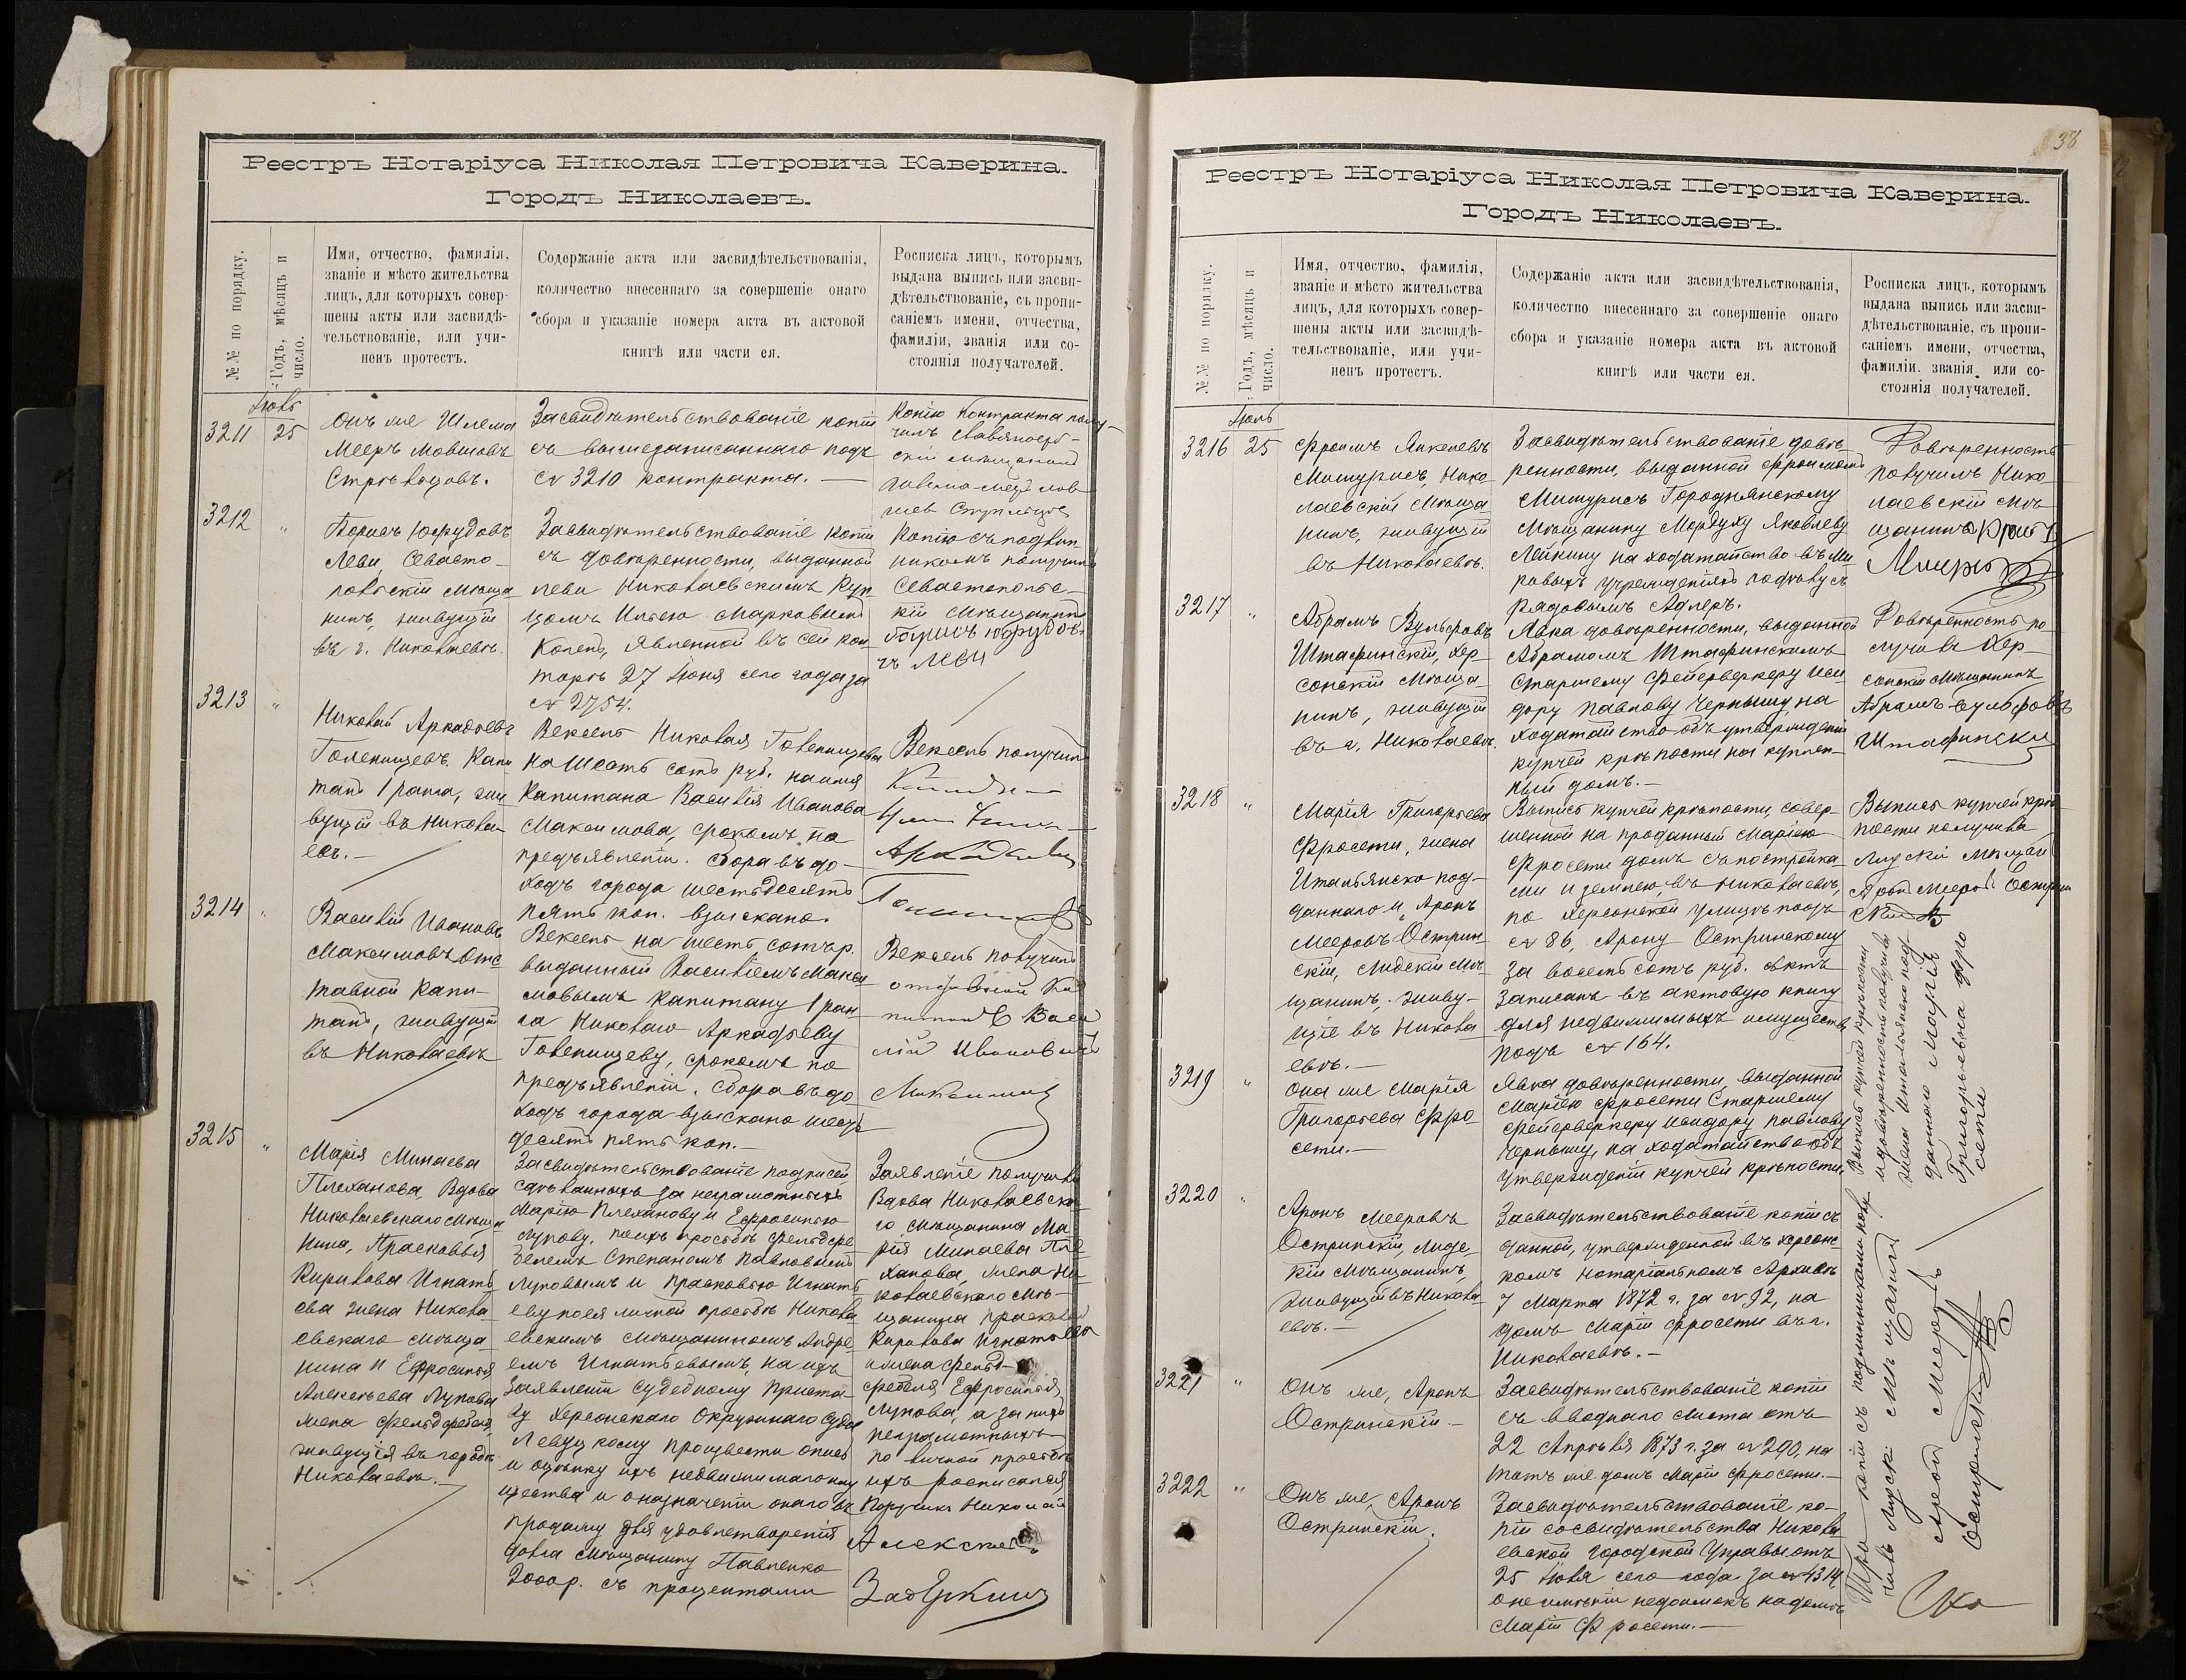 Реестръ Нотаріуса Николая Петровича Каверина.
Городъ Николаевъ.
№№ по порядку.
Годъ, мѣсяцъ и
число.
Имя, отчество, фамилія,
званіе и мѣсто жительства
лицъ, для которыхъ совер-
шены акты или засвидѣ-
тельствованіе, или учи-
ненъ протестъ.
Содержаніе акта или засвидѣтельствованія,
количество внесеннаго за совершеніе онаго
сбора и указаніе номера акта въ актовой
книгѣ или части ея.
Росписка лицъ, которымъ
выдана выпись или засви-
дѣтельствованіе, съ пропи-
саніемъ имени, отчества,
фамиліи, званія или со-
стоянія получателей.
Іюль
3211
25
Онъ же Шлема
Мееръ Мовшовъ
Стрѣльцовъ.
Засвидѣтельствованіе копіи
съ вышезаписаннаго подъ
№ 3210 контракта. —
Копію контракта полу-
чилъ
скій мѣщанинъ
3212
"
Борисъ Юфудовъ
Леви, Севасто-
польскій мѣща
нинъ, живущій
въ г. Николаевѣ.
Засвидѣтельствованіе копіи
съ довѣренности, выданной
Леви Николаевскимъ Куп
цомъ Ильею Марковымъ
Когенъ, явленной въ сей кон
торѣ 27 Іюня сего года за
№ 2754.
Копію съ подлин
никомъ получилъ
Севастопольс-
кій Мѣщанинъ
Борисъ Юфудов
чъ Леви
3213
"
Николай Аркадьевъ
Голенищевъ. Капи
танъ 1 ранга, жи
вущій въ Никола
евѣ. —
Вексель Николая Голенищева
на шесть сотъ руб. на имя
Капитана Василія Иванова
Максимова, срокомъ по
предъявленіи. Сбора въ до-
ходъ города шестьдесятъ
пять коп. взыскано.
Вексель получилъ
3214
"
Василій Ивановъ
Максимовъ Отс
тавной Капи-
танъ, живущій
въ Николаевѣ
Вексель на шесть сотъ р.
выданный Василіемъ Макси
мовымъ капитану 1 ран
га Николаю Аркадьеву
Голенищеву, срокомъ по
предъявленіи. Сбора въ до
ходъ города взыскано шесть
десятъ пять коп. —
Вексель получилъ
отставной Ка
питанъ Васи
лій Ивановичъ
3215
"
Марія Минаева
Плеханова, Вдова
Николаевскаго Мѣща
нина, Прасковья
Кирилова Игнать
ева жена Никола
евскаго мѣща
нина и Ефросинья
Алексѣева Лупова
жена фельдфебеля,
живущія въ городѣ
Николаевѣ. —
Засвидѣтельствованіе подписей
сдѣланныхъ за неграмотныхъ
Марію Плеханову и Ефросинью
Лупову, по ихъ просьбѣ фельдфе
белемъ Степаномъ Павловымъ
Луповымъ и Прасковью Игнать
еву по ея личной просьбѣ Никола
евскимъ мѣщаниномъ Андре
емъ Игнатьевымъ, на ихъ
заявленіи Судебному Приста-
ву Херсонскаго Окружнаго Суда
Левуцкому произвести опись
и оцѣнку ихъ недвижимаго иму
щества и о назначеніи онаго въ
продажу для удовлетворенія
долга мѣщанину Павленко
2000 р. съ процентами
Заявленіе получили
Вдова Николаевска
го Мѣщанина Ма
рія Минаева Пле
ханова, жена Ни
колаевскаго Мѣ-
щанина Прасковья
Кирилова Игнатьева
и жена фельд-
фебеля Ефросинья
Лупова, а за нихъ
неграмотныхъ
по личной просьбѣ
ихъ росписался
Поручикъ Николай
38
Реестръ Нотаріуса Николая Петровича Каверина.
Городъ Николаевъ.
№№ по порядку.
Годъ, мѣсяцъ и
число.
Имя, отчество, фамилія,
званіе и мѣсто жительства
лицъ, для которыхъ совер-
шены акты или засвидѣ-
тельствованіе, или учи-
ненъ протестъ.
Содержаніе акта или засвидѣтельствованія,
количество внесеннаго за совершеніе онаго
сбора и указаніе номера акта въ актовой
книгѣ или части ея.
Росписка лицъ, которымъ
выдана выпись или засви-
дѣтельствованіе, съ пропи-
саніемъ имени, отчества,
фамиліи. званія или со-
стоянія получателей.
Іюль
3216
25
Фроимъ Янкелевъ
Мишурисъ, Нико
лаевскій Мѣща
нинъ, живущій
въ Николаевѣ.
Засвидѣтельствованіе довѣ
ренности, выданной Фроимомъ
Мишурисъ Городнянскому
Мѣщанину Мордуху Яковлеву
Лейкину на ходатайство въ Ми
ровыхъ учрежденіяхъ по дѣлу съ
рядовымъ Адлеръ.
Довѣренность
получилъ Нико
лаевскій Мѣ
щанинъ
3217
"
Абрамъ Вульфовъ
Штафинскій, Хер-
сонскій Мѣща-
нинъ, живущій
въ г. Николаевѣ.
Явка довѣренности, выданной
Абрамомъ Штафинскимъ
Старшему Фейерверкеру Иси
дору Павлову Чернышу, на
ходатайство объ утвержденіи
купчей крѣпости на куплен-
ный домъ. —
Довѣренность по
лучилъ Хер-
сонскій Мѣщанинъ
Абрамъ Вульфовъ
Штафински
3218
"
Марія Григорьева
Фросети, жена
Итальянско под-
даннаго и Аронъ
Мееровъ Острин-
скій, Лидскій Мѣ
щанинъ, живу-
щіе въ Никола
евѣ. —
Выпись купчей крѣпости, совер-
шенной на проданный Маріею
Фросети домъ съ постройка
ми и землею, въ Николаевѣ,
по Херсонской улицѣ подъ
№ 86, Арону Остринскому
за восемь сотъ руб. Актъ
записанъ въ актовую книгу
для недвижимыхъ имуществъ
подъ № 164.
Выпись купчей крѣ
пости получилъ
Лидскій Мѣщан
3219
"
Она же Марія
Григорьева Фро-
сети. —
Явка довѣренности, выданной
Маріею Фросети Старшему
Фейерверкеру Исидору Павлову
Чернышу, на ходатайство объ
утвержденіи купчей крѣпости.
Выпись купчей крѣпости
и довѣренность получила
жена Итальянско под-
даннаго Марія
Григорьевна Фро
сети
3220
"
Аронъ Мееровъ
Остринскій, Лидс-
кій Мѣщанинъ,
живущій въ Никола-
евѣ. —
Засвидѣтельствованіе копіи съ
данной, утвержденной въ Херсонс-
комъ Нотаріальномъ Архивѣ
7 Марта 1872 г. за № 92, на
домъ Маріи Фросети въ г.
Николаевѣ. —
3221
"
Онъ же, Аронъ
Остринскій. —
Засвидѣтельствованіе копіи
съ вводнаго листа отъ
22 Апрѣля 1873 г. за № 290, на
тотъ же домъ Маріи Фросети. —
3222
"
Онъ же, Аронъ
Остринскій.
Засвидѣтельствованіе ко-
піи со свидѣтельства Никола
евской Городской Управы отъ
25 Іюля сего года за № 4314,
о неимѣніи недоимокъ на домѣ
Маріи Фросети. —
Три копіи съ подлинниками полу
чилъ Лидскі Мѣщанинъ